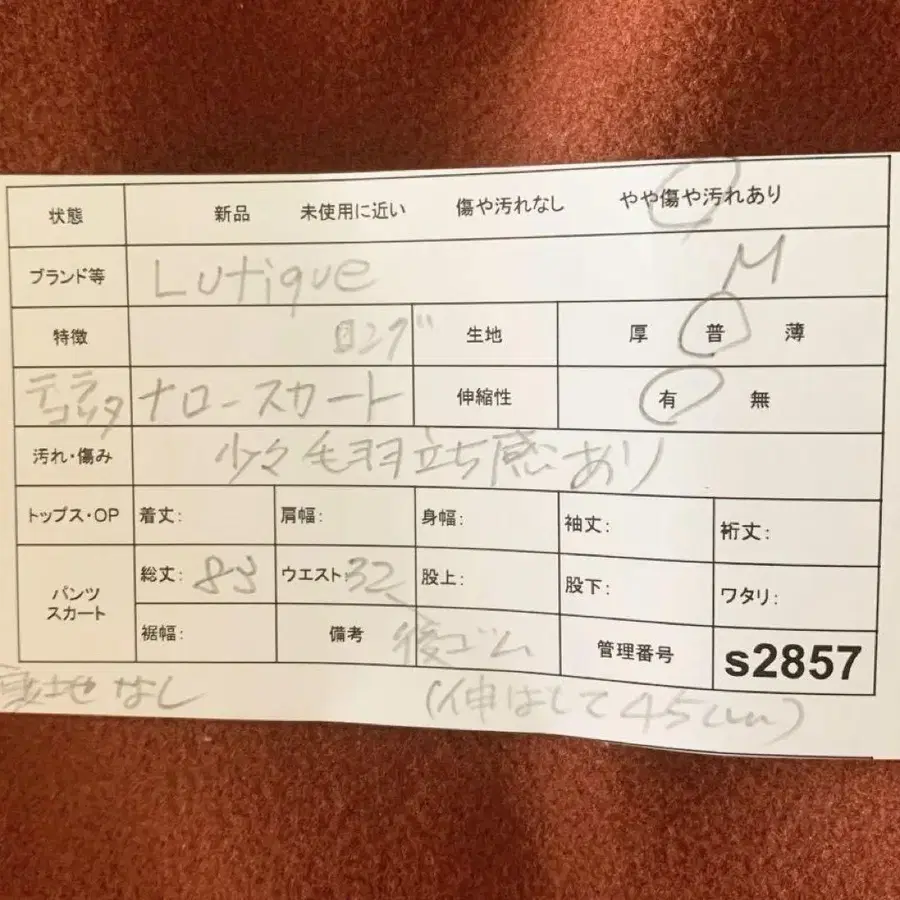 状態 新品 未使用に近い 傷や汚れなし やや傷や汚れあり
ブランド等 Lutique M
特徴 ロング 生地 厚 普 薄
テラコッタ ナロースカート 伸縮性 有 無
汚れ・傷み 少々毛羽立ち感あり
トップス・OP 着丈: 肩幅: 身幅: 袖丈: 裄丈:
パンツ スカート 総丈: 83 ウエスト: 32 股上: 股下: ワタリ:
裾幅: 備考 後ゴム 管理番号 s2857
裏地なし (伸ばして45cm)